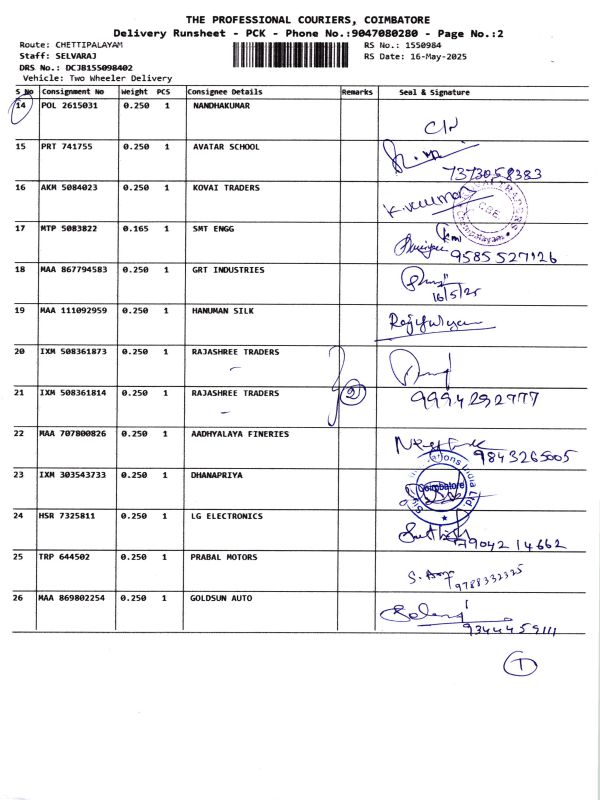 THE PROFESSIONAL COURIERS, COIMBATORE
Delivery Runsheet - PCK - Phone No.:9047080280 - Page No.:2
Route: CHETTIPALAYAM
RS No.: 1550984
Staff: SELVARAJ
RS Date: 16-May-2025
DRS No.: DCJB155098402
Vehicle: Two Wheeler Delivery
S No Consignment No Weight PCS Consignee Details Remarks Seal & Signature
14 POL 2615031 0.250 1 NANDHAKUMAR
15 PRT 741755 0.250 1 AVATAR SCHOOL
7373058383
16 AKM 5084023 0.250 1 KOVAI TRADERS
17 MTP 5083822 0.165 1 SMT ENGG
9585527126
18 MAA 867794583 0.250 1 GRT INDUSTRIES
16/5/25
19 MAA 111092959 0.250 1 HANUMAN SILK
20 IXM 508361873 0.250 1 RAJASHREE TRADERS
21 IXM 508361814 0.250 1 RAJASHREE TRADERS 2
9994292777
22 MAA 707800826 0.250 1 AADHYALAYA FINERIES
9843265005
23 IXM 303543733 0.250 1 DHANAPRIYA
Coimbatore
24 HSR 7325811 0.250 1 LG ELECTRONICS
79042 14662
25 TRP 644502 0.250 1 PRABAL MOTORS
9788332325
26 MAA 869802254 0.250 1 GOLDSUN AUTO
9344459111